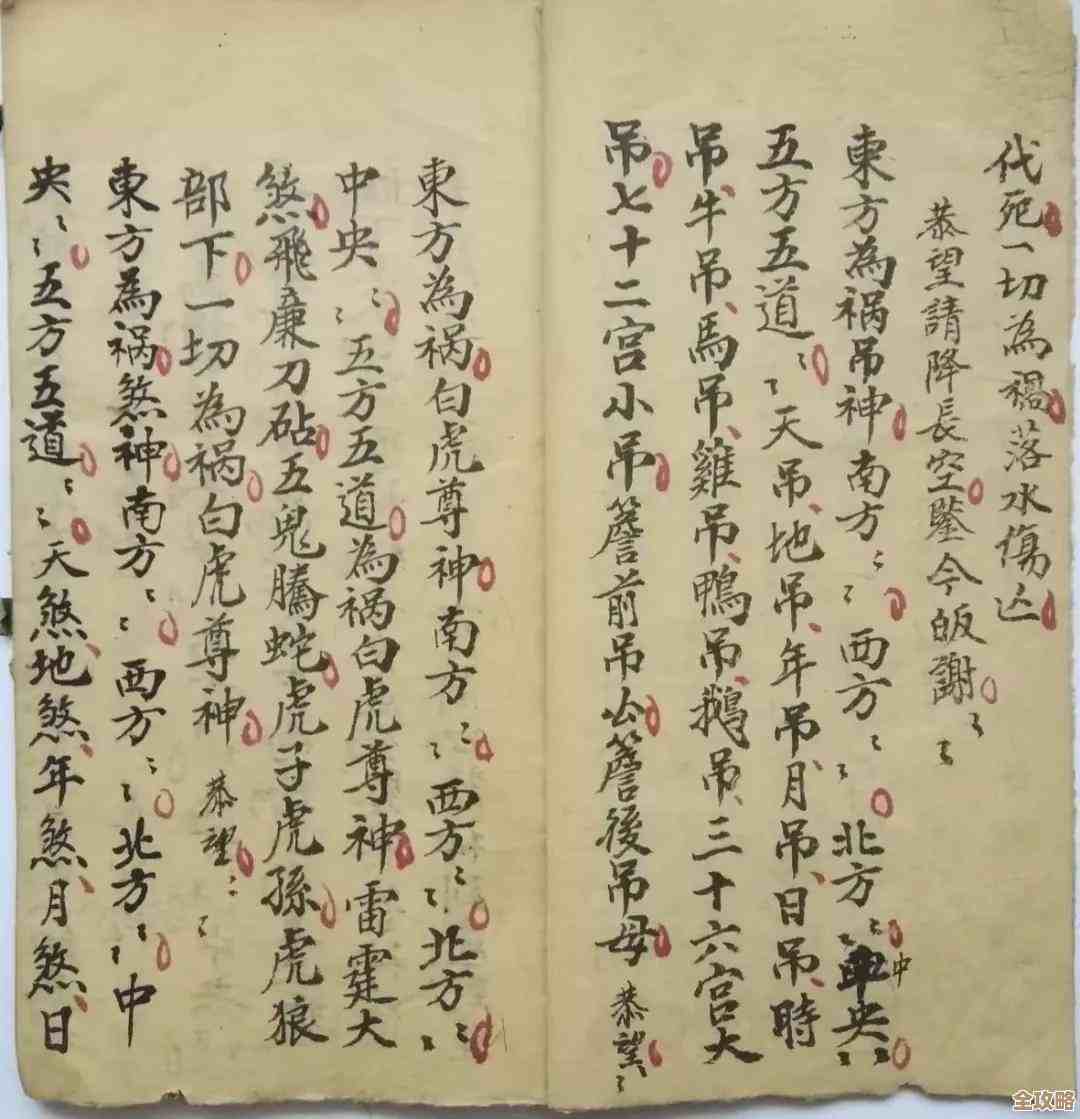 伐死一切為禍落水傷亡
恭望請降長空鑒今皈謝〻
東方為祸吊神南方〻西方〻北方〻中央〻
五方五道〻天吊、地吊、年吊、月吊、日吊、時
吊、牛吊、馬吊、雞吊、鴨吊、鵝吊、三十六宫大
吊七十二宫小吊簷前吊公簷後吊母 恭望〻
東方為祸白虎尊神南方〻西方〻北方〻
中央〻五方五道為祸白虎尊神雷霆大
煞飛廉刀砧五鬼騰蛇虎子虎孫虎狼
部下一切為祸白虎尊神 恭望〻
東方為祸煞神南方〻西方〻北方〻中
央〻五方五道〻天煞、地煞、年煞、月煞、日
全攻略